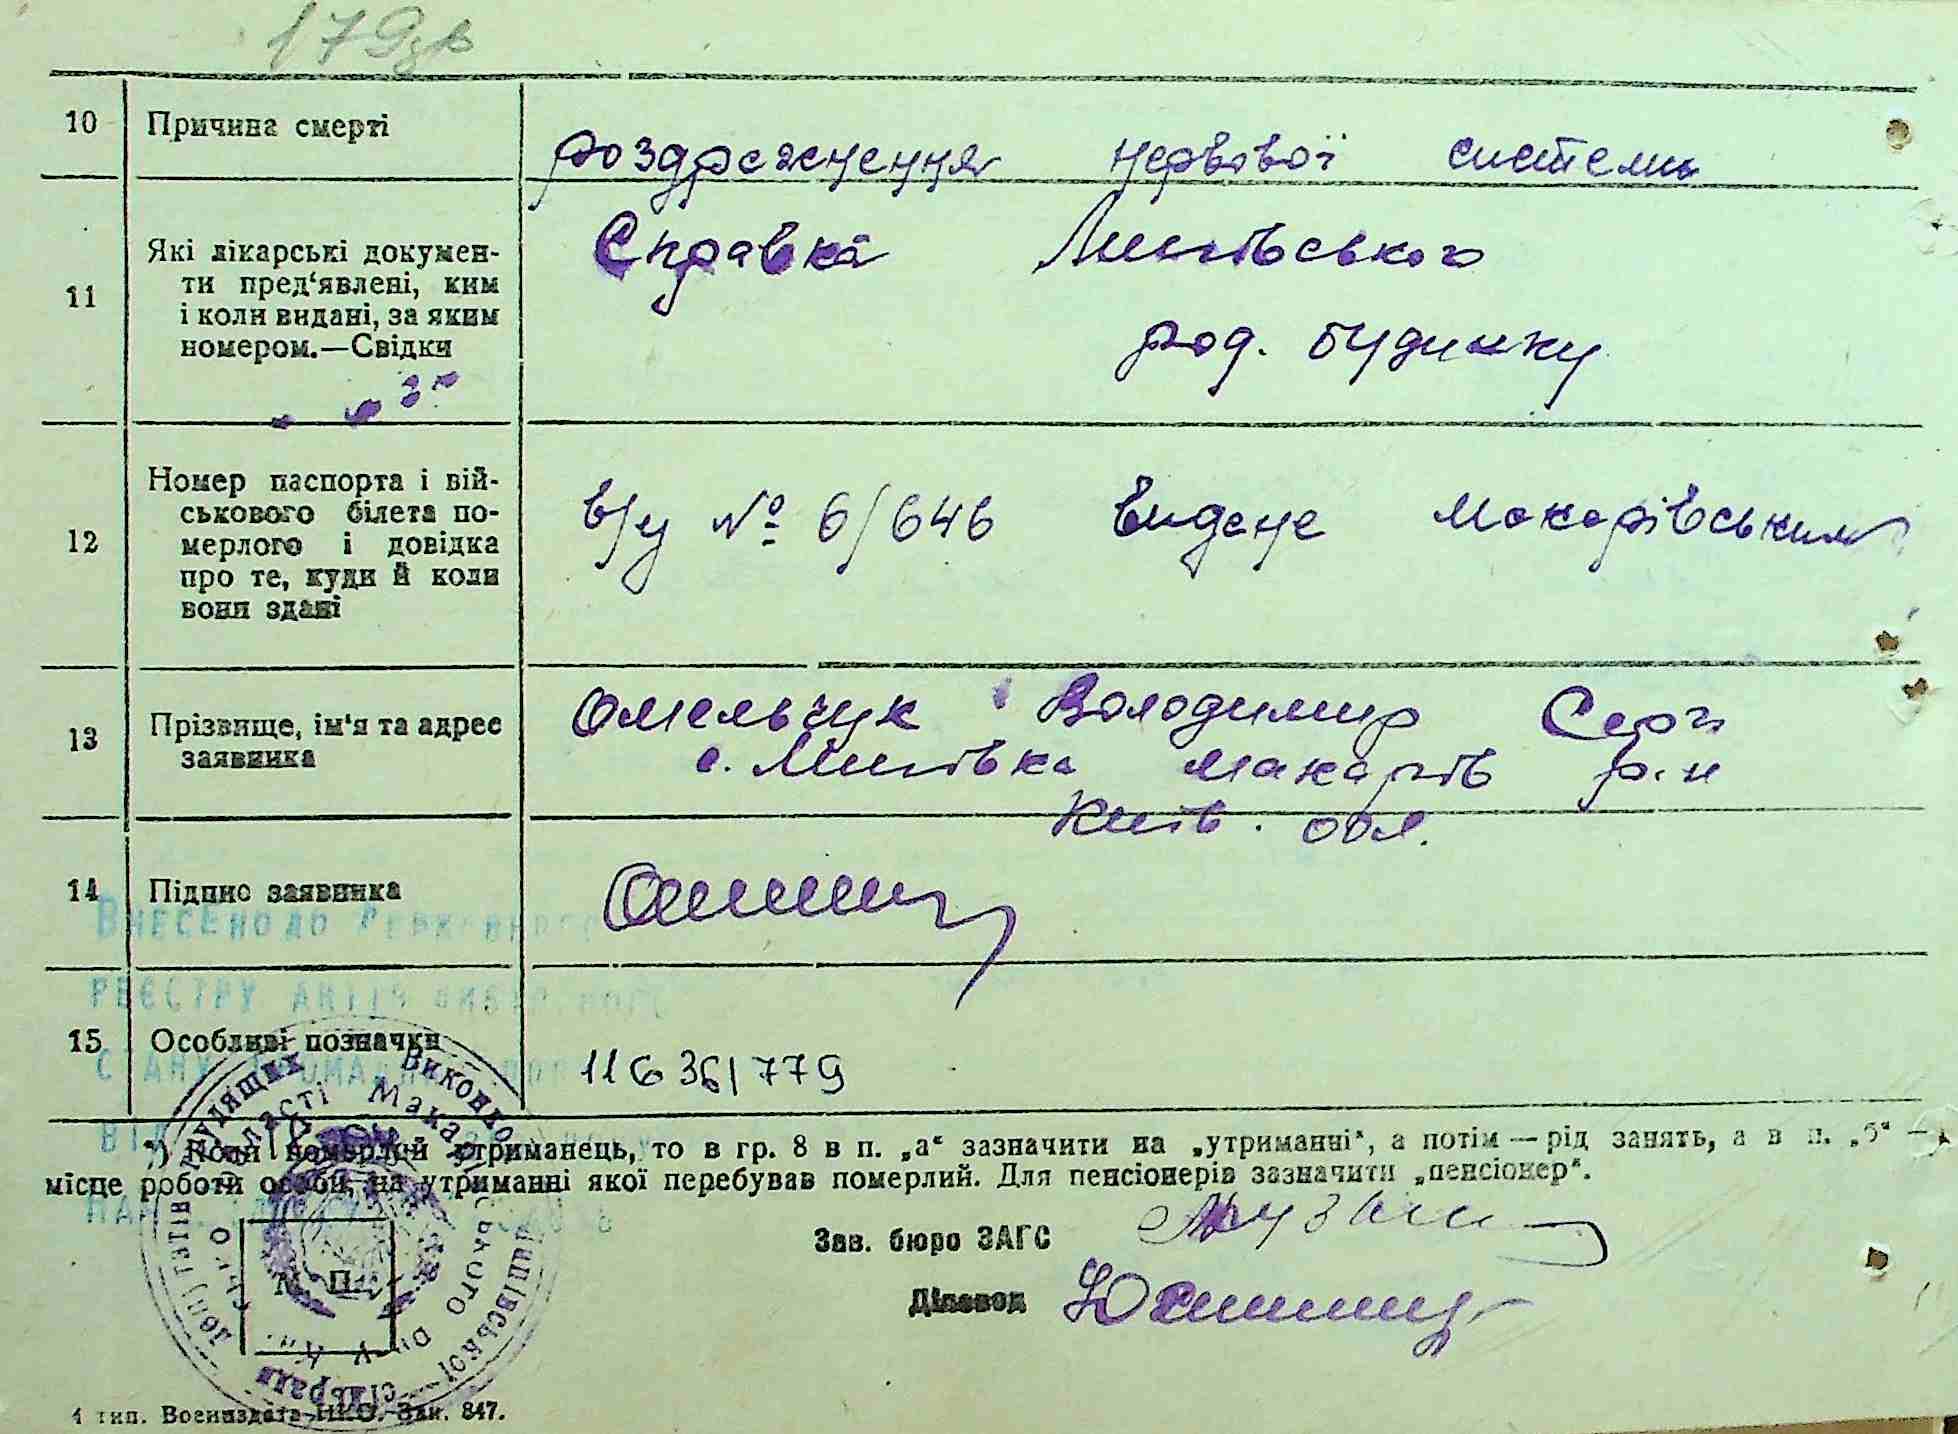 179зв
10 Причина смерті
роздраженння нервової системи
11 Які лікарські докумен-
ти пред‘явлені, ким
і коли видані, за яким
номером.—Свідки
Справка Липівського
род. будинку
12 Номер паспорта і вій-
ськового білета по-
мерлого і довідка
про те, куди й коли
вони здані
в/у № 6/646 видане Макарівським
13 Прізвище, ім‘я та адрес
заявника
Омельчук Володимир Серг
с. Липівка Макарів р-н
Київ. обл.
14 Підпис заявника
Внесено до Державного
реєстру актів цивільного
стану громадян
15 Особливі позначки
11636/779
*) Коли померлий утриманець, то в гр. 8 в п. „а“ зазначити на „утриманні“, а потім — рід занять, а в п. „б“ —
місце роботи особи, на утриманні якої перебував померлий. Для пенсіонерів зазначити „пенсіонер“.
Зав. бюро ЗАГС
Діловод
М. П.
Виконко
Липівської сільради
депутатів трудящих
Макарівського р-ну Ки
ської області
4 тип. Воениздата НКО. Зак. 847.